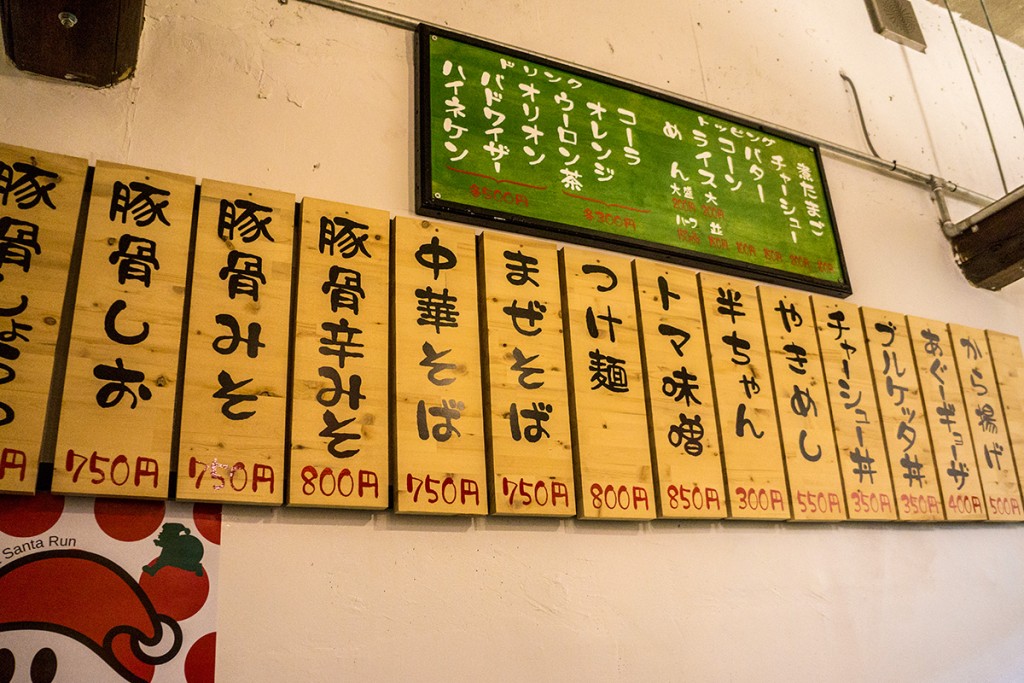 煮たまご
チャーシュー
バター
コーン
ライス大
めん大盛
トッピング
ハーフ
並
コーラ
オレンジ
ウーロン茶
オリオン
バドワイザー
ハイネケン
ドリンク
$300円
$500円
豚骨しょうゆ
円
豚骨しお
750円
豚骨みそ
750円
豚骨辛みそ
800円
中華そば
750円
まぜそば
750円
つけ麺
800円
トマ味噌
850円
半ちゃん
300円
やきめし
550円
チャーシュー丼
350円
ブルケッタ丼
350円
あぐーギョーザ
400円
から揚げ
500円
Santa Run